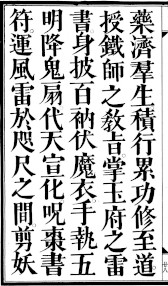 藥濟羣生積行累功修至道
授鐵師之敎旨掌玉府之雷
書身披百衲伏魔衣手執五
明降鬼扇代天宣化呪棗書
符運風雷於咫尺之間剪妖